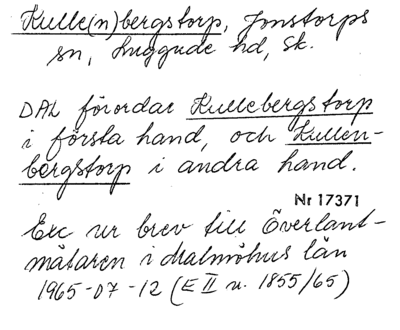 Kulle(n)bergstorp, Jonstorps
sn, Luggude hd, Sk.
DAL förordar Kullebergstorp
i första hand, och Kullen-
bergstorp i andra hand.
Nr 17371
Exc ur brev till Överlant-
mätaren i Malmöhus län
1965-07-12 (E II n. 1855/65)